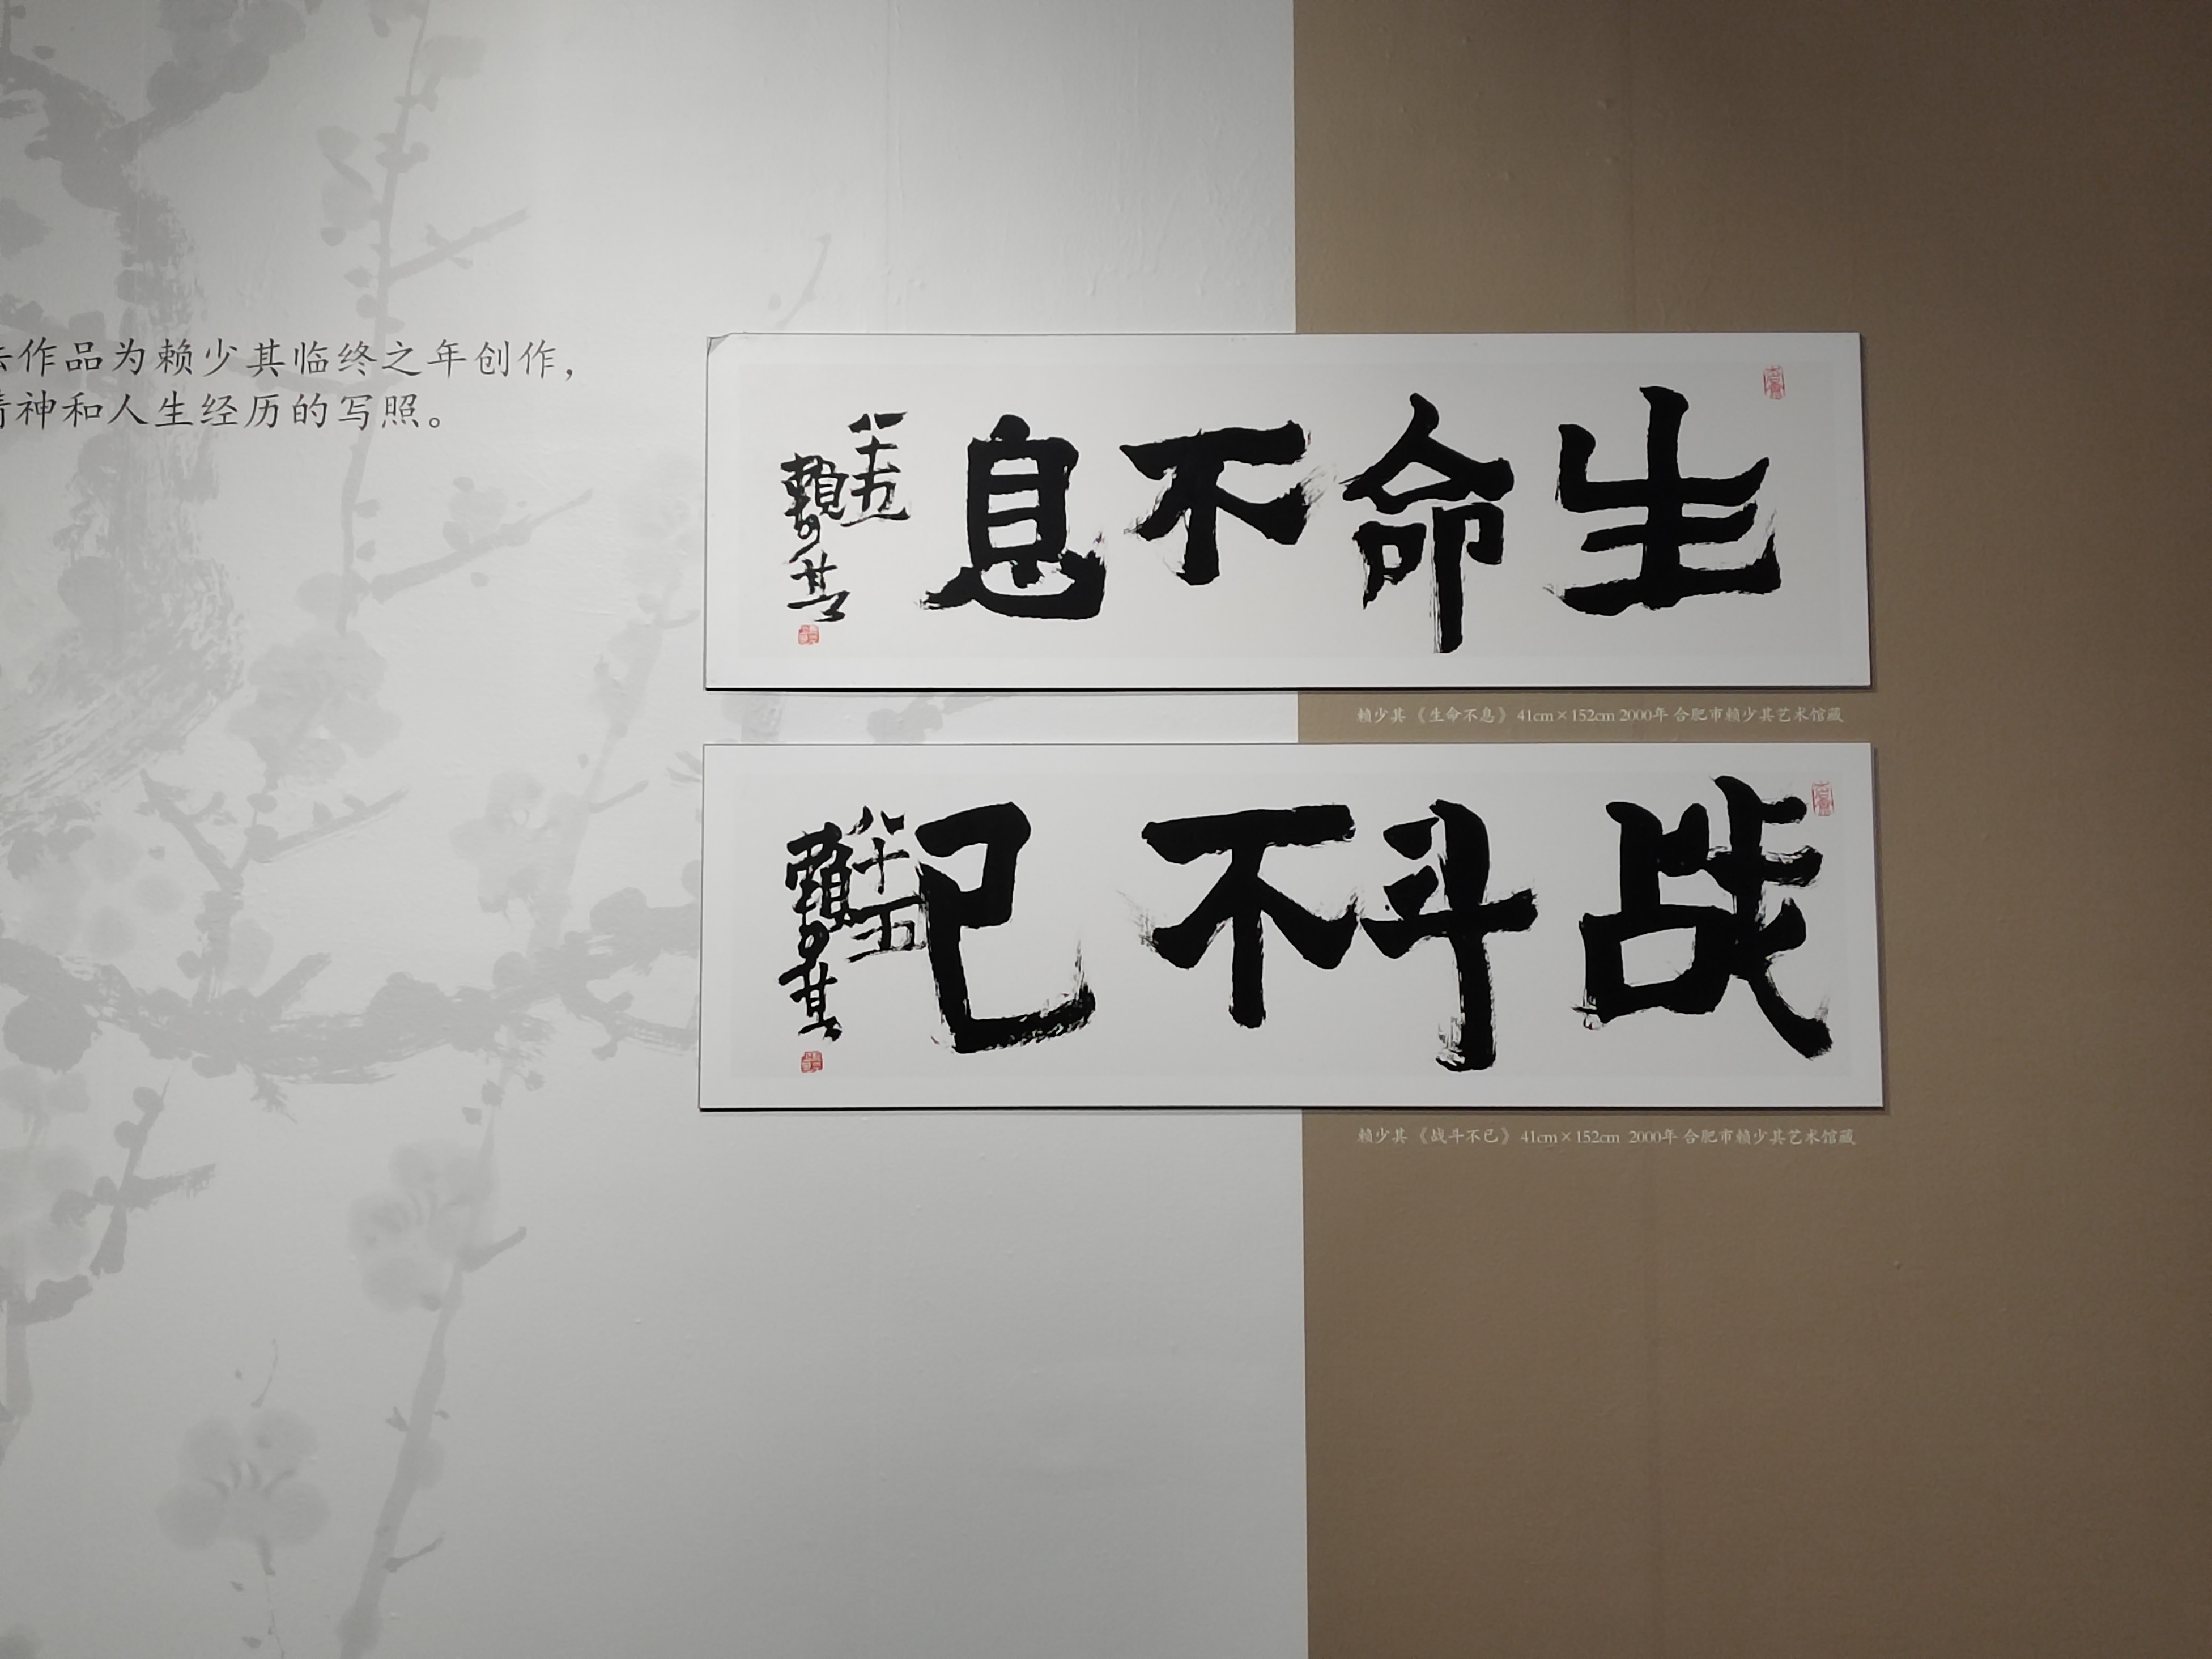 作品为赖少其临终之年创作，
神和人生经历的写照。
生命不息
八十五
賴少其
赖少其《生命不息》41cm×152cm 2000年 合肥市赖少其艺术馆藏
战斗不已
八十五
賴少其
赖少其《战斗不已》41cm×152cm 2000年 合肥市赖少其艺术馆藏